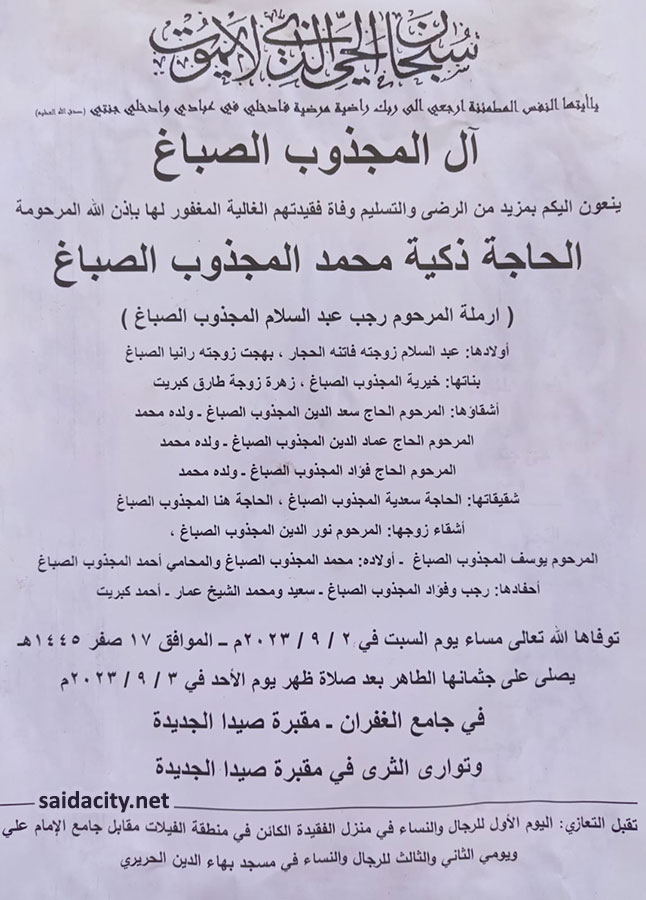 سبحان الحي الذي لا يموت
ياأيتها النفس المطمئنة ارجعي الى ربك راضية مرضية فادخلي في عبادي وادخلي جنتي (صدق الله العظيم)
آل المجذوب الصباغ
ينعون اليكم بمزيد من الرضى والتسليم وفاة فقيدتهم الغالية المغفور لها بإذن الله المرحومة
الحاجة ذكية محمد المجذوب الصباغ
( ارملة المرحوم رجب عبد السلام المجذوب الصباغ )
أولادها: عبد السلام زوجته فاتنه الحجار ، بهجت زوجته رانيا الصباغ
بناتها: خيرية المجذوب الصباغ ، زهرة زوجة طارق كبريت
أشقاؤها: المرحوم الحاج سعد الدين المجذوب الصباغ ـ ولده محمد
المرحوم الحاج عماد الدين المجذوب الصباغ ـ ولده محمد
المرحوم الحاج فؤاد المجذوب الصباغ ـ ولده محمد
شقيقاتها: الحاجة سعدية المجذوب الصباغ ، الحاجة هنا المجذوب الصباغ
أشقاء زوجها: المرحوم نور الدين المجذوب الصباغ ،
المرحوم يوسف المجذوب الصباغ ـ أولاده: محمد المجذوب الصباغ والمحامي أحمد المجذوب الصباغ
أحفادها: رجب وفؤاد المجذوب الصباغ ـ سعيد ومحمد الشيخ عمار ـ أحمد كبريت
توفاها الله تعالى مساء يوم السبت في ٢ / ٩ / ٢٠٢٣م ـ الموافق ١٧ صفر ١٤٤٥هـ
يصلى على جثمانها الطاهر بعد صلاة ظهر يوم الأحد في ٣ / ٩ / ٢٠٢٣م
في جامع الغفران ـ مقبرة صيدا الجديدة
وتوارى الثرى في مقبرة صيدا الجديدة
saidacity.net
تقبل التعازي: اليوم الأول للرجال والنساء في منزل الفقيدة الكائن في منطقة الفيلات مقابل جامع الإمام علي
ويومي الثاني والثالث للرجال والنساء في مسجد بهاء الدين الحريري